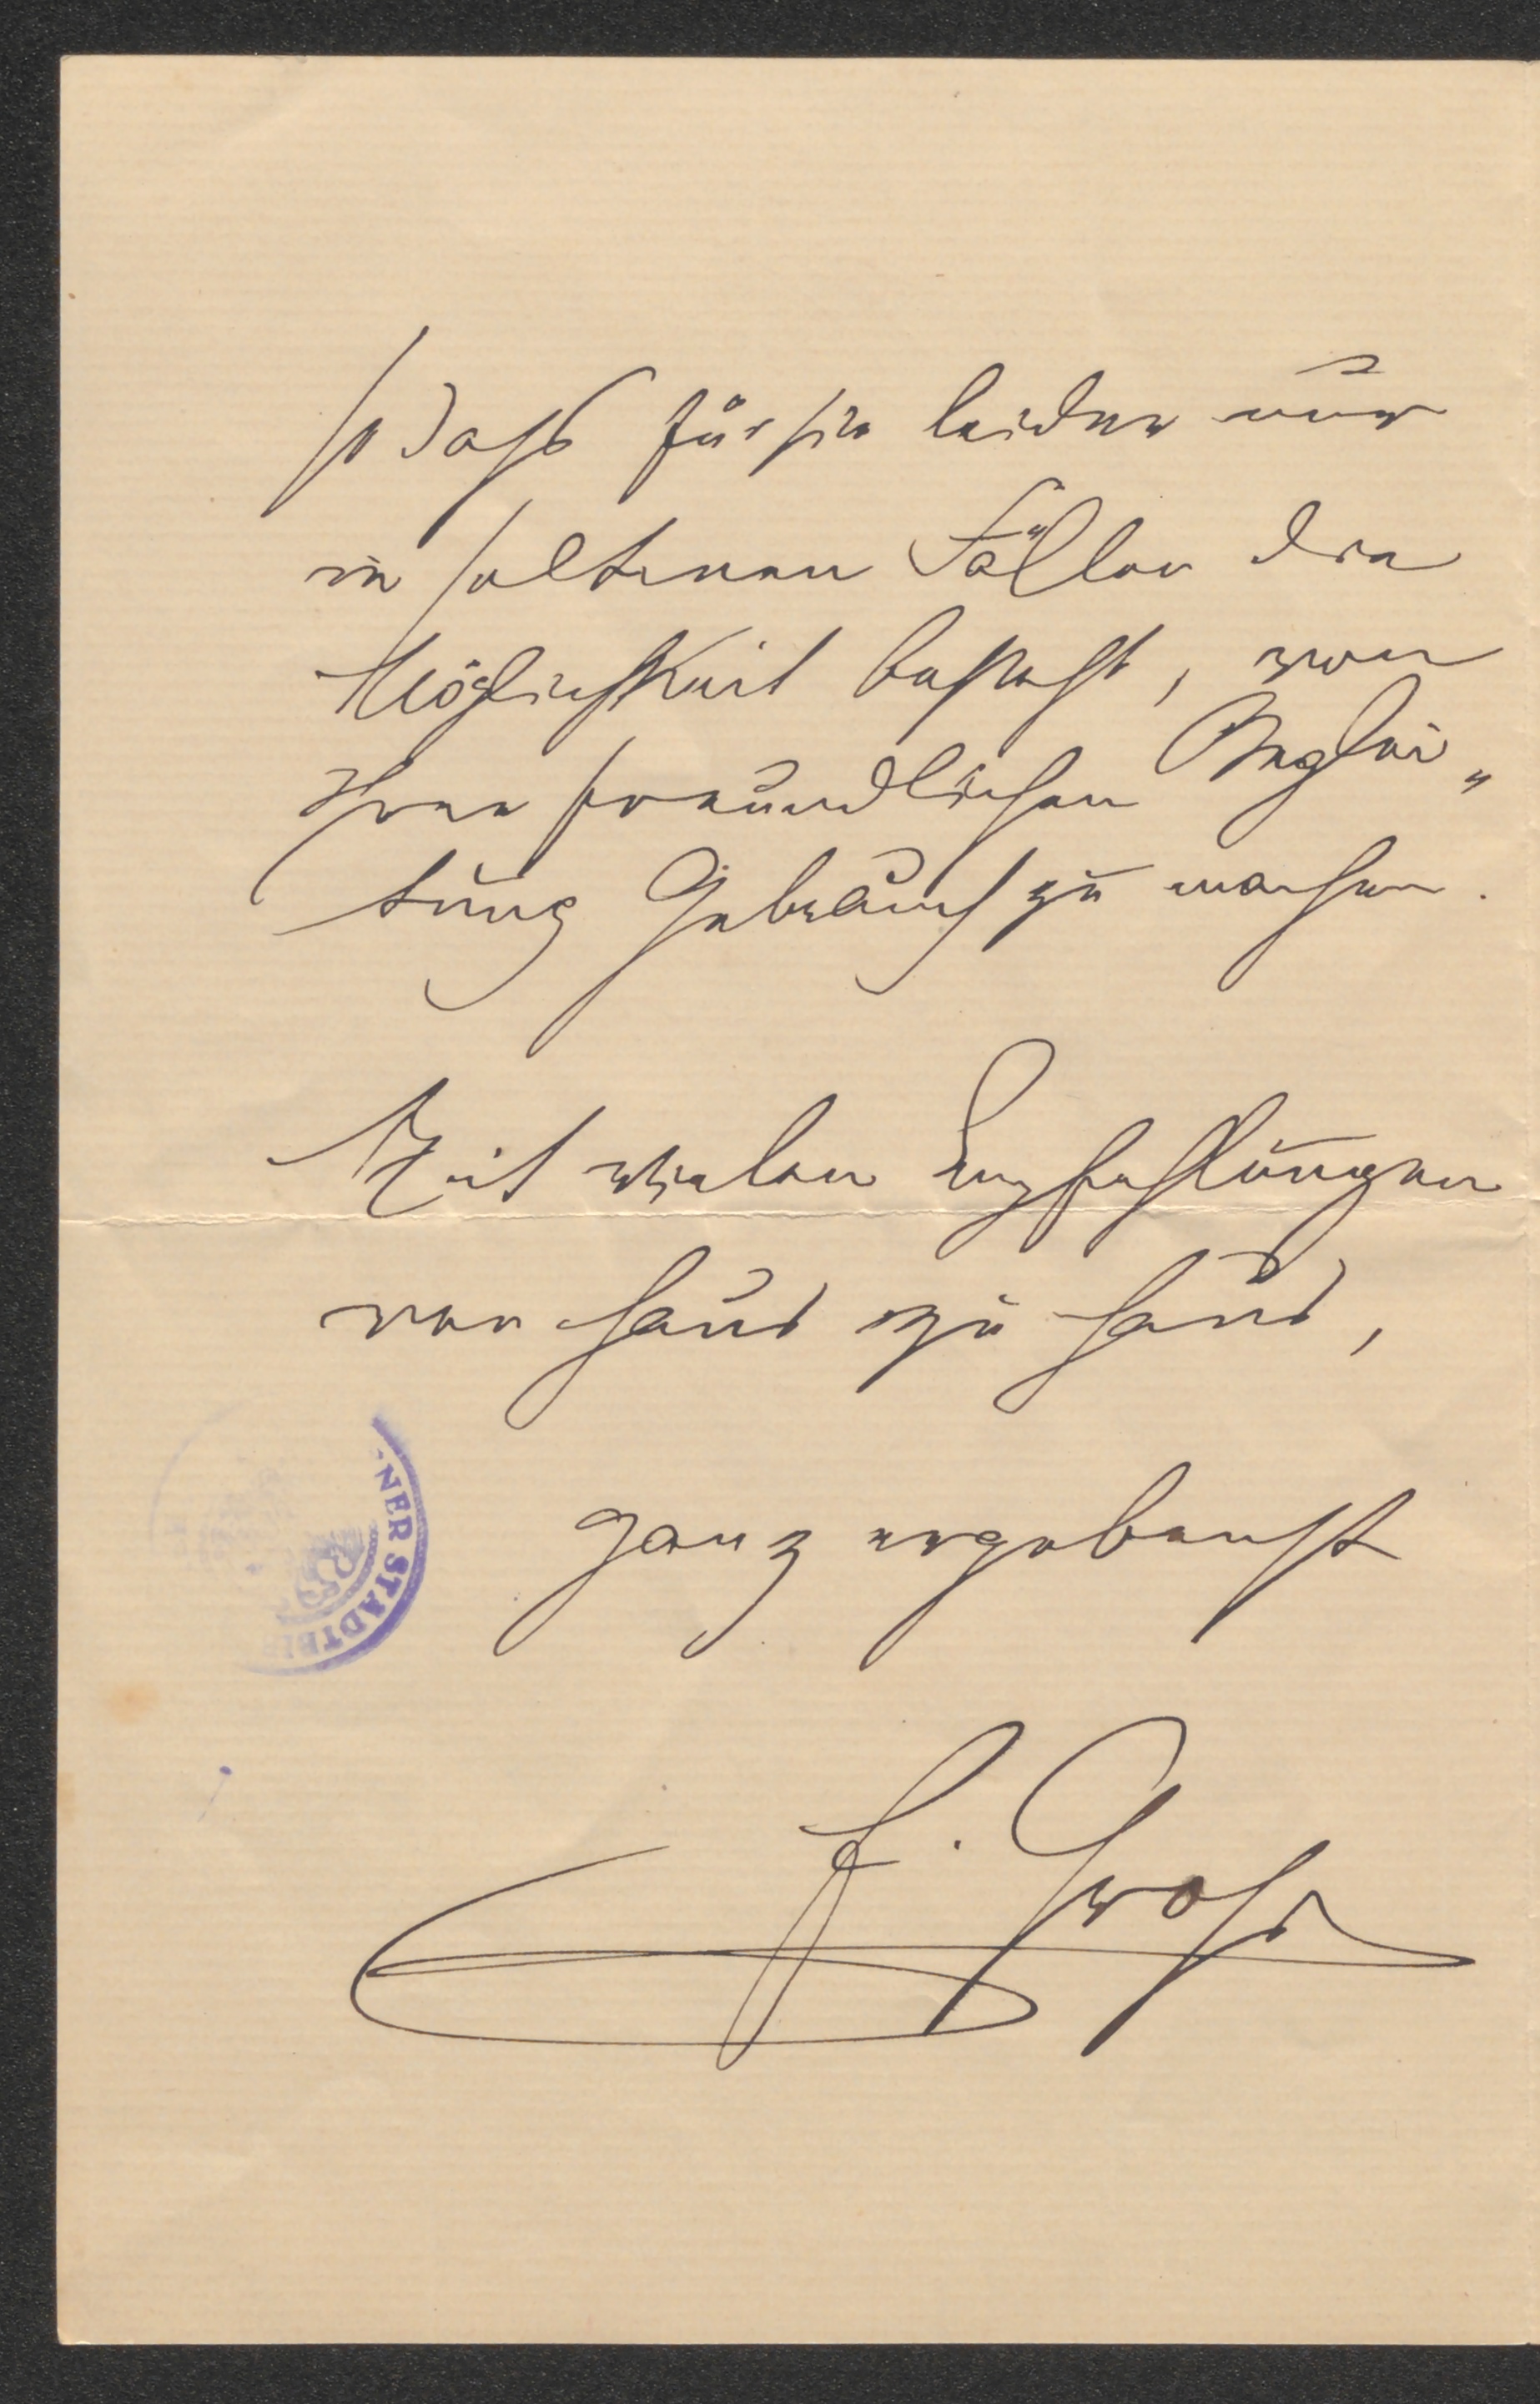 so daß für sie leider nur
in seltenen Fällen die
Möglichkeit besteht, von
Ihrer freundlichen Beglei„
tung Gebrauch zu machen.
Mit vielen Empfehlungen
von Haus zu Haus,
ganz ergebenst
F. Groß
NER STADTBI